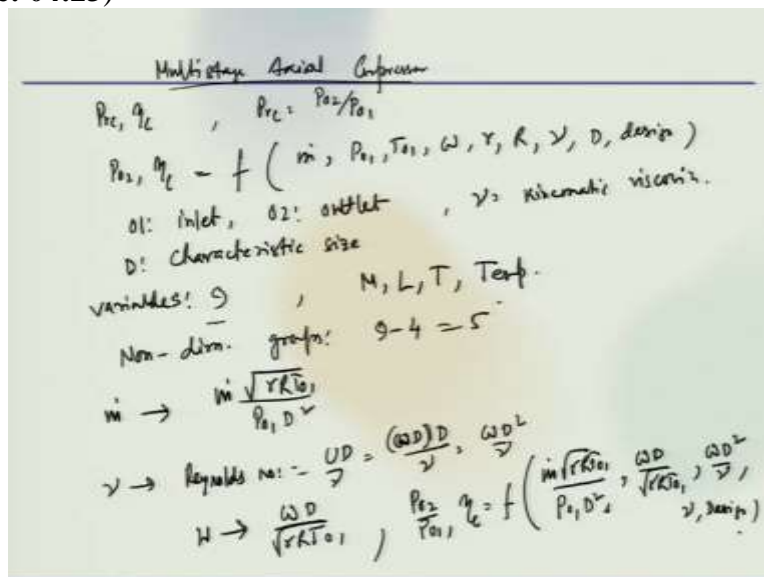 04:23)
Multistage Axial Compressor
Prc, ηc , Prc = P02/P01
P02, ηc = f ( ṁ, P01, T01, ω, γ, R, ν, D, design )
01: inlet, 02: outlet , ν = kinematic viscosity.
D: characteristic size
variables: 9 , M, L, T, Temp.
Non-dim. groups: 9-4 = 5
ṁ → ṁ √γRT01 / P01 D²
ν → Reynolds no: - UD/ν = (ωD)D/ν = ωD²/ν
ω → ωD/√γRT01 , P02/P01, ηc = f ( ṁ√γRT01/P01 D², ωD/√γRT01, ωD²/ν, γ, design )